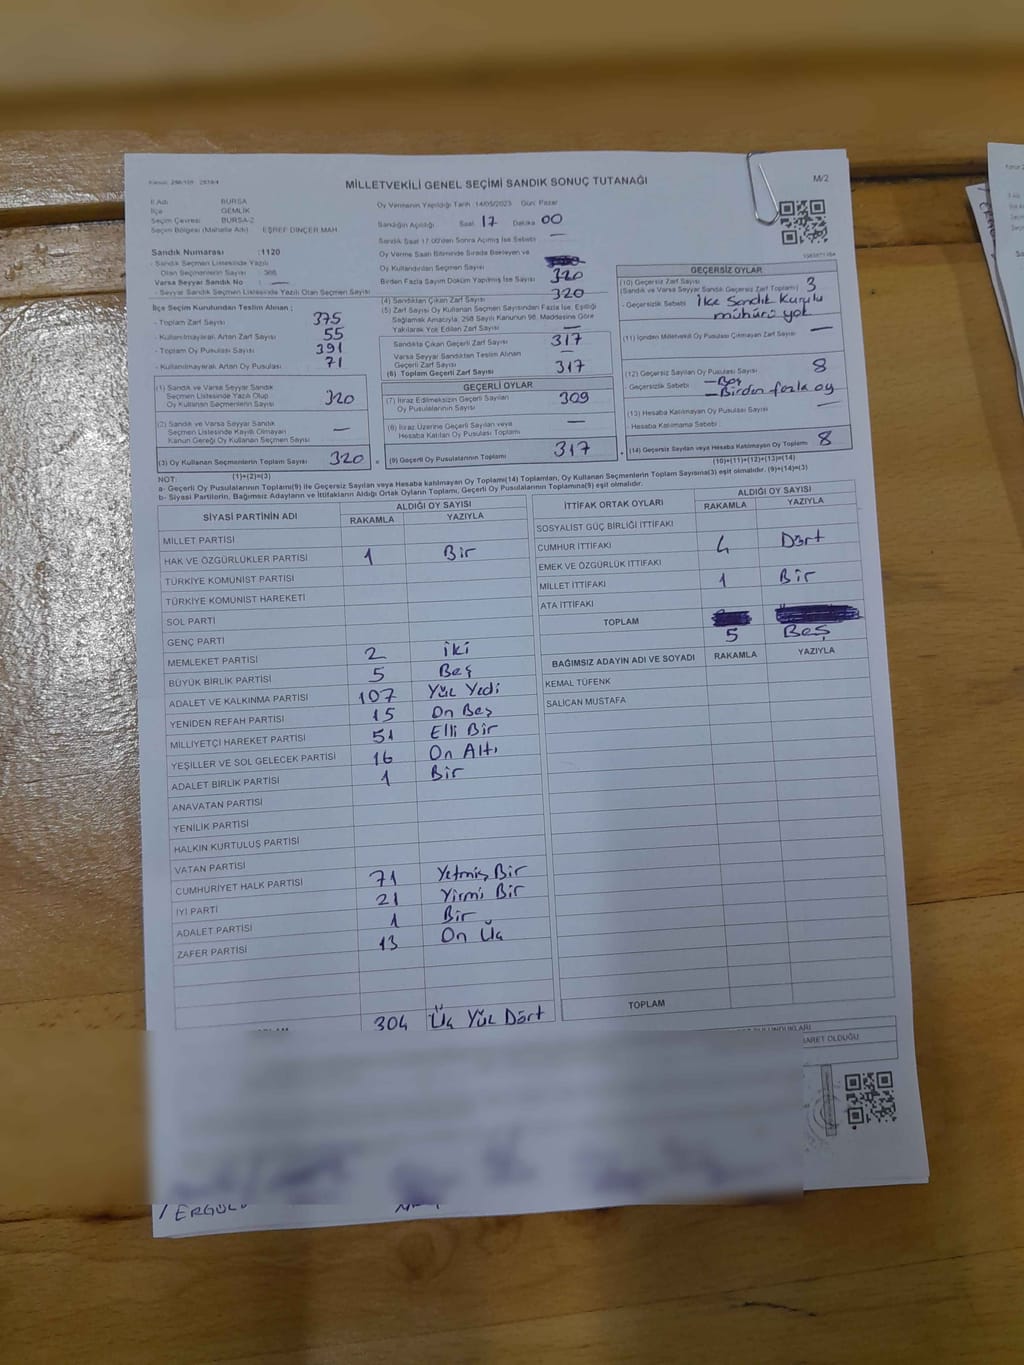 MİLLETVEKİLİ GENEL SEÇİMİ SANDIK SONUÇ TUTANAĞI
M/2
İl Adı BURSA
İlçe GEMLİK
Seçim Çevresi BURSA-2
Seçim Bölgesi (Mahalle Adı) EŞREF DİNÇER MAH.
Oy Vermenin Yapıldığı Tarih :14/05/2023 Gün: Pazar
Sandığın Açıldığı: Saat 17 Dakika 00
Sandık Saat 17.00'den Sonra Açılmış İse Sebebi —
Oy Verme Saati Bitiminde Sırada Bekleyen ve
Oy Kullandırılan Seçmen Sayısı
Birden Fazla Sayım Döküm Yapılmış İse Sayısı 320
Sandık Numarası :1120
- Sandık Seçmen Listesinde Yazılı
Olan Seçmenlerin Sayısı : 366
Varsa Seyyar Sandık No : —
- Seyyar Sandık Seçmen Listesinde Yazılı Olan Seçmen Sayısı
İlçe Seçim Kurulundan Teslim Alınan ;
- Toplam Zarf Sayısı 375
- Kullanılmayarak Artan Zarf Sayısı 55
- Toplam Oy Pusulası Sayısı 391
- Kullanılmayarak Artan Oy Pusulası 71
(1) Sandık ve Varsa Seyyar Sandık
Seçmen Listesinde Yazılı Olup
Oy Kullanan Seçmenlerin Sayısı 320
(2) Sandık ve Varsa Seyyar Sandık
Seçmen Listesinde Kayıtlı Olmayan
Kanun Gereği Oy Kullanan Seçmen Sayısı —
(3) Oy Kullanan Seçmenlerin Toplam Sayısı 320
(1)+(2)=(3)
(4) Sandıktan Çıkan Zarf Sayısı 320
(5) Zarf Sayısı Oy Kullanan Seçmen Sayısından Fazla İse, Eşitliği
Sağlamak Amacıyla, 298 Sayılı Kanunun 98. Maddesine Göre
Yakılarak Yok Edilen Zarf Sayısı —
Sandıkta Çıkan Geçerli Zarf Sayısı 317
Varsa Seyyar Sandıktan Teslim Alınan
Geçerli Zarf Sayısı —
(6) Toplam Geçerli Zarf Sayısı 317
GEÇERLİ OYLAR
(7) İtiraz Edilmeksizin Geçerli Sayılan
Oy Pusulalarının Sayısı 309
(8) İtiraz Üzerine Geçerli Sayılan veya
Hesaba Katılan Oy Pusulası Toplamı —
(9) Geçerli Oy Pusulalarının Toplamı 317
GEÇERSİZ OYLAR
(10) Geçersiz Zarf Sayısı
(Sandık ve Varsa Seyyar Sandık Geçersiz Zarf Toplamı) 3
- Geçersizlik Sebebi İlçe Sandık Kurulu
mührü yok
(11) İçinden Milletvekili Oy Pusulası Çıkmayan Zarf Sayısı —
(12) Geçersiz Sayılan Oy Pusulası Sayısı 8
Geçersizlik Sebebi —Boş
—Birden fazla oy
(13) Hesaba Katılmayan Oy Pusulası Sayısı —
Hesaba Katılmama Sebebi
(14) Geçersiz Sayılan veya Hesaba Katılmayan Oy Toplamı 8
(10)+(11)+(12)+(13)=(14)
NOT:
a- Geçerli Oy Pusulaları Toplamı(9) ile Geçersiz Sayılan veya Hesaba katılmayan Oy Toplamı(14) Toplamları, Oy Kullanan Seçmenlerin Toplam Sayısına(3) eşit olmalıdır. (9)+(14)=(3)
b- Siyasi Partilerin, Bağımsız Adayların ve İttifakların Aldığı Ortak Oyların Toplamı, Geçerli Oy Pusulalarının Toplamına(9) eşit olmalıdır.
SİYASİ PARTİNİN ADI ALDIĞI OY SAYISI
RAKAMLA YAZIYLA
MİLLET PARTİSİ
HAK VE ÖZGÜRLÜKLER PARTİSİ 1 Bir
TÜRKİYE KOMÜNİST PARTİSİ
TÜRKİYE KOMÜNİST HAREKETİ
SOL PARTİ
GENÇ PARTİ
MEMLEKET PARTİSİ 2 iki
BÜYÜK BİRLİK PARTİSİ 5 Beş
ADALET VE KALKINMA PARTİSİ 107 Yüz Yedi
YENİDEN REFAH PARTİSİ 15 On Beş
MİLLİYETÇİ HAREKET PARTİSİ 51 Elli Bir
YEŞİLLER VE SOL GELECEK PARTİSİ 16 On Altı
ADALET BİRLİK PARTİSİ 1 Bir
ANAVATAN PARTİSİ
YENİLİK PARTİSİ
HALKIN KURTULUŞ PARTİSİ
VATAN PARTİSİ
CUMHURİYET HALK PARTİSİ 71 Yetmiş Bir
İYİ PARTİ 21 Yirmi Bir
ADALET PARTİSİ 1 Bir
ZAFER PARTİSİ 13 On Üç
304 Üç Yüz Dört
İTTİFAK ORTAK OYLARI ALDIĞI OY SAYISI
RAKAMLA YAZIYLA
SOSYALİST GÜÇ BİRLİĞİ İTTİFAKI
CUMHUR İTTİFAKI 4 Dört
EMEK VE ÖZGÜRLÜK İTTİFAKI
MİLLET İTTİFAKI 1 Bir
ATA İTTİFAKI
TOPLAM 5 Beş
BAĞIMSIZ ADAYIN ADI VE SOYADI RAKAMLA YAZIYLA
KEMAL TÜFENK
SALİCAN MUSTAFA
TOPLAM
OLDUĞU